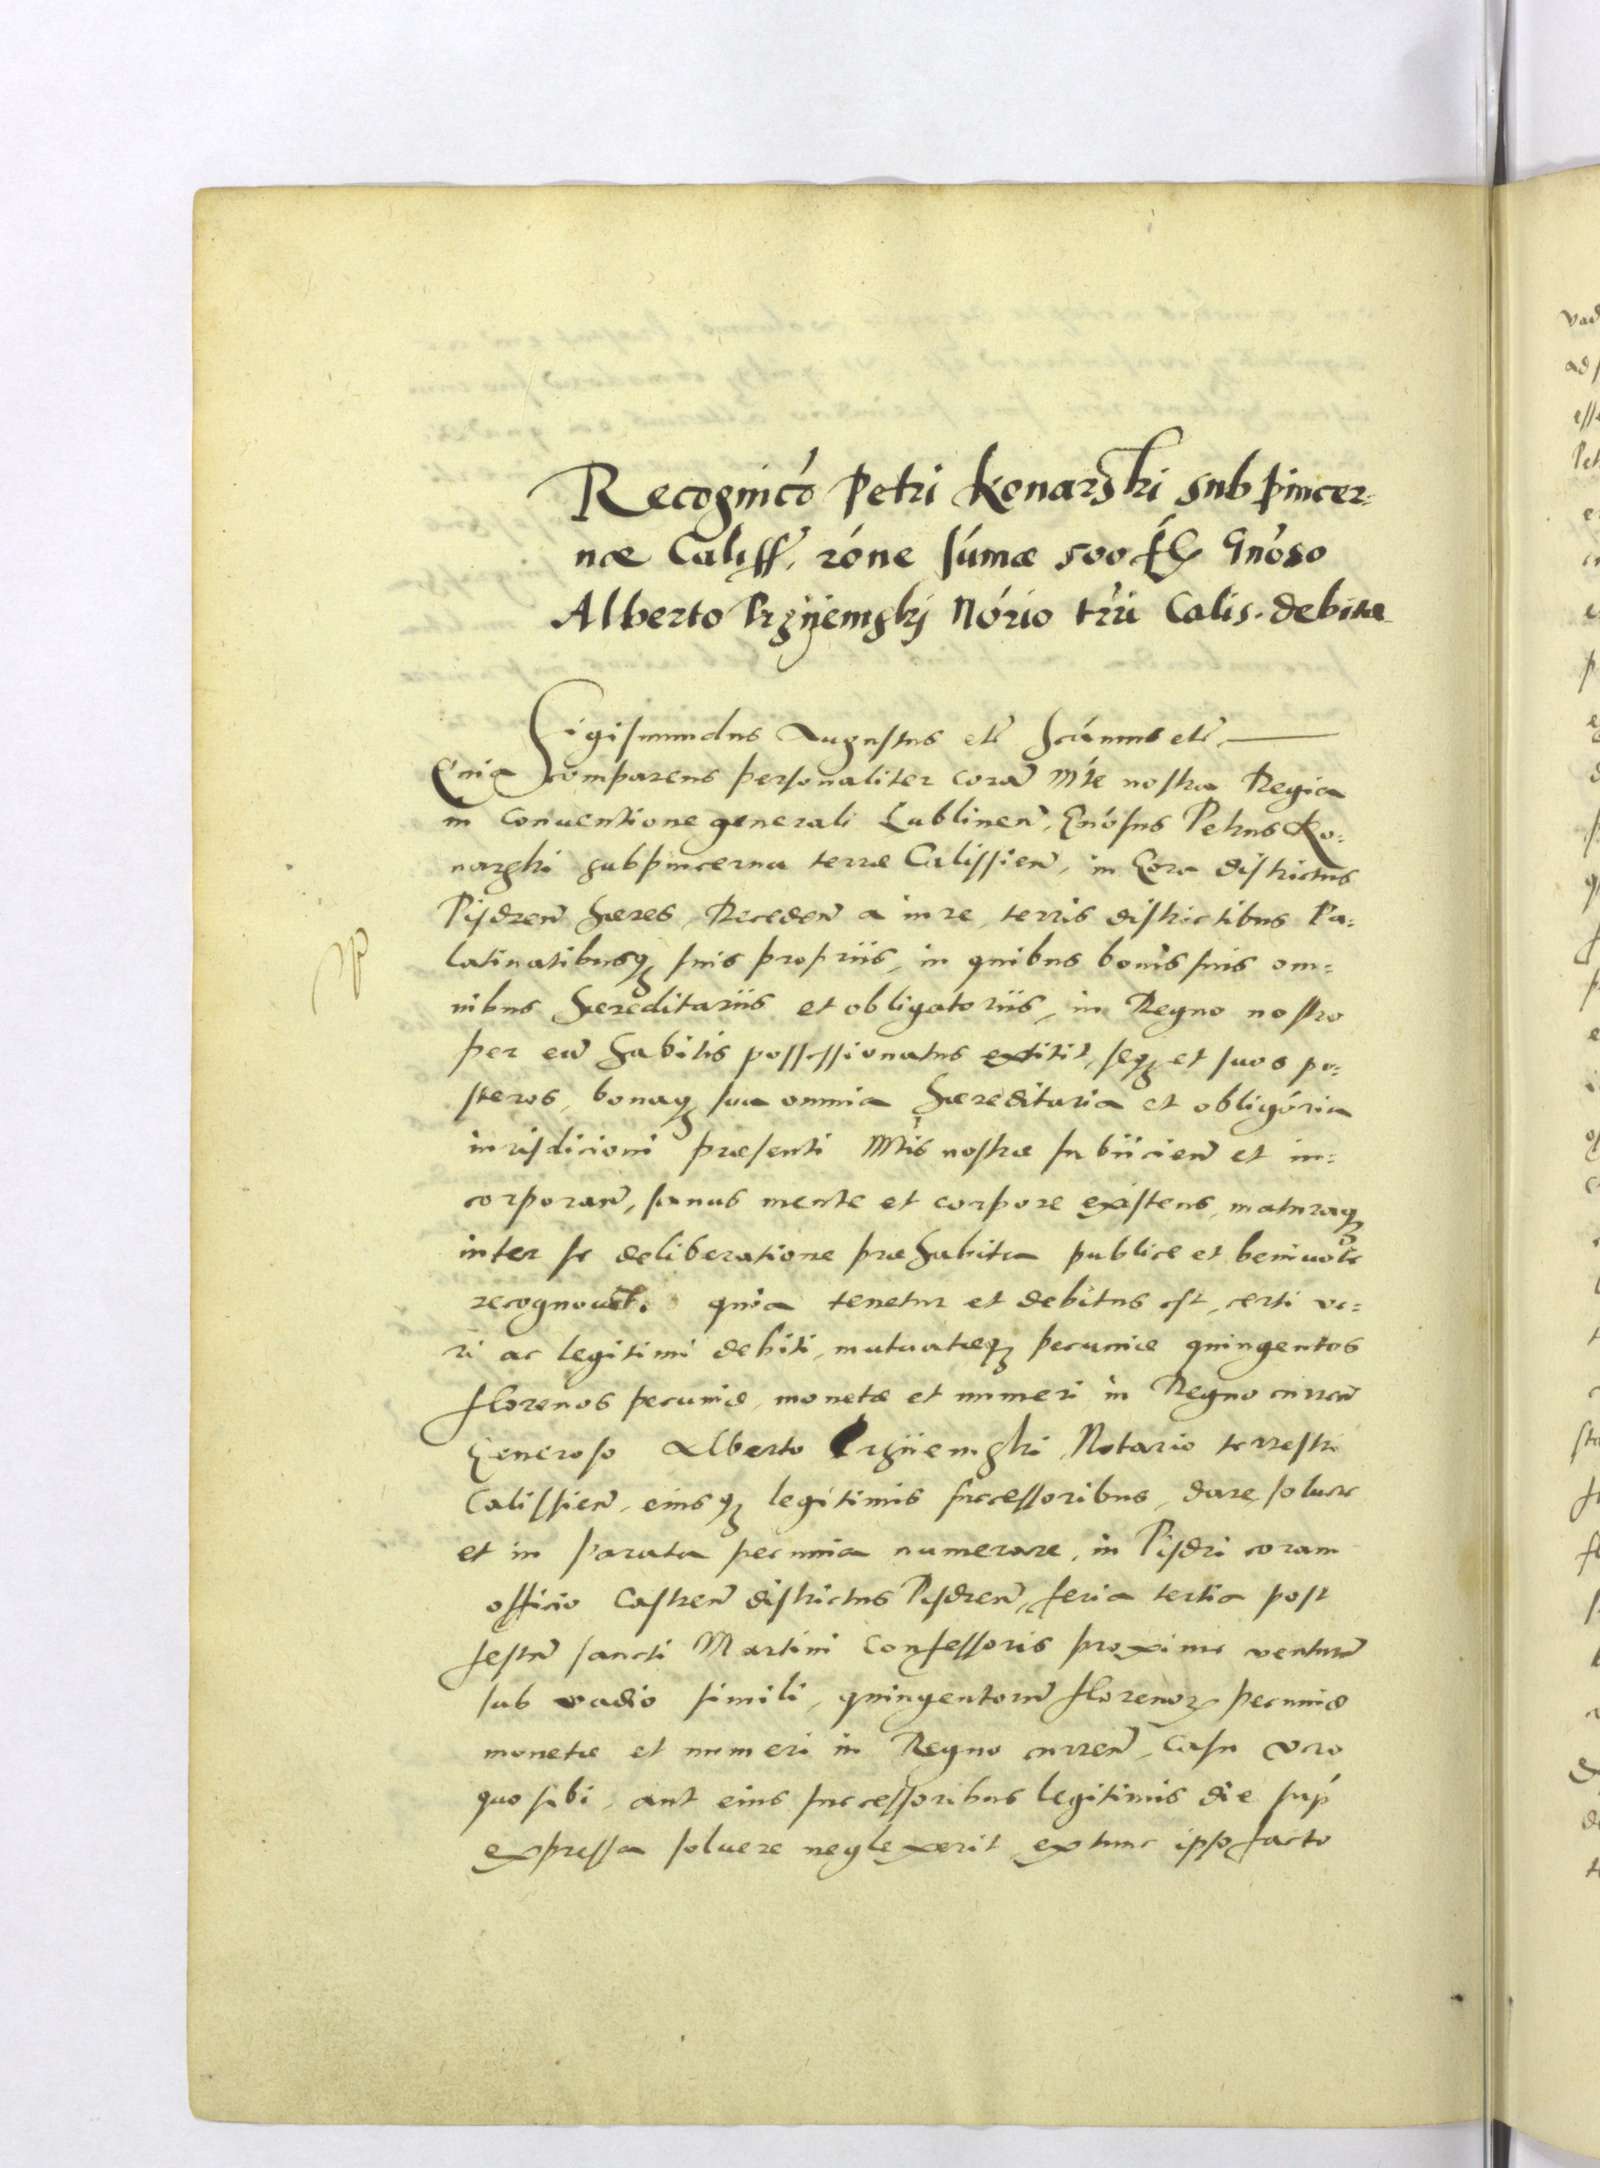 Recognicó Petri Konarski subpincer=
næ Caliss, róne súmæ 500 fl Gnóso
Alberto Przijemskj Nório trii Calis. debitæ
Sigismundus Augustus etc̃ Scímus etc̃
Quia comparens personaliter corã Mte nostra Regia
in Conuentione generali Lublineñ, Gnósus Petrus Ko=
narski subpincerna terræ Calissieñ, in Gora districtus
Pisdreñ hæres, Recedeñ a iure, terris districtibus Pa=
latinatibusq suis propriis, in quibus bonis suis om=
nibus hæreditariis et obligatoriis, in Regno nostro
per eũ habitis possessionatus extitit, seq et suos po=
steros, bonaq sua omnia hæreditaria et obligória
iurisdicioni præsenti Mtis nostræ subiicieñ et in=
corporañ, sanus mente et corpore existens, maturaq
inter se deliberatione præhabita publice et beniuole
recognouit. quia tenetur et debitus est, certi ve=
ri ac legitimi debiti, mutuatæq pecuniæ quingentos
florenos pecuniæ, monetæ et numeri in Regno curreñ
Generoso Alberto Przijemski Notario terrestri
Calissieñ, eiusq legitimis successoribus, dare, soluere
et in parata pecunia numerare, in Pisdri coram
officio Castreñ districtus Pisdreñ, feria tertia post
festũ sancti Martini Confessoris proxime venturũ
sub vadio simili, quingentorũ florenor pecuniæ
monetæ et numeri in Regno curreñ, Casu vero
quo sibi, aut eius successoribus legitimis die sup
expressa soluere neglexerit, extunc ipso facto